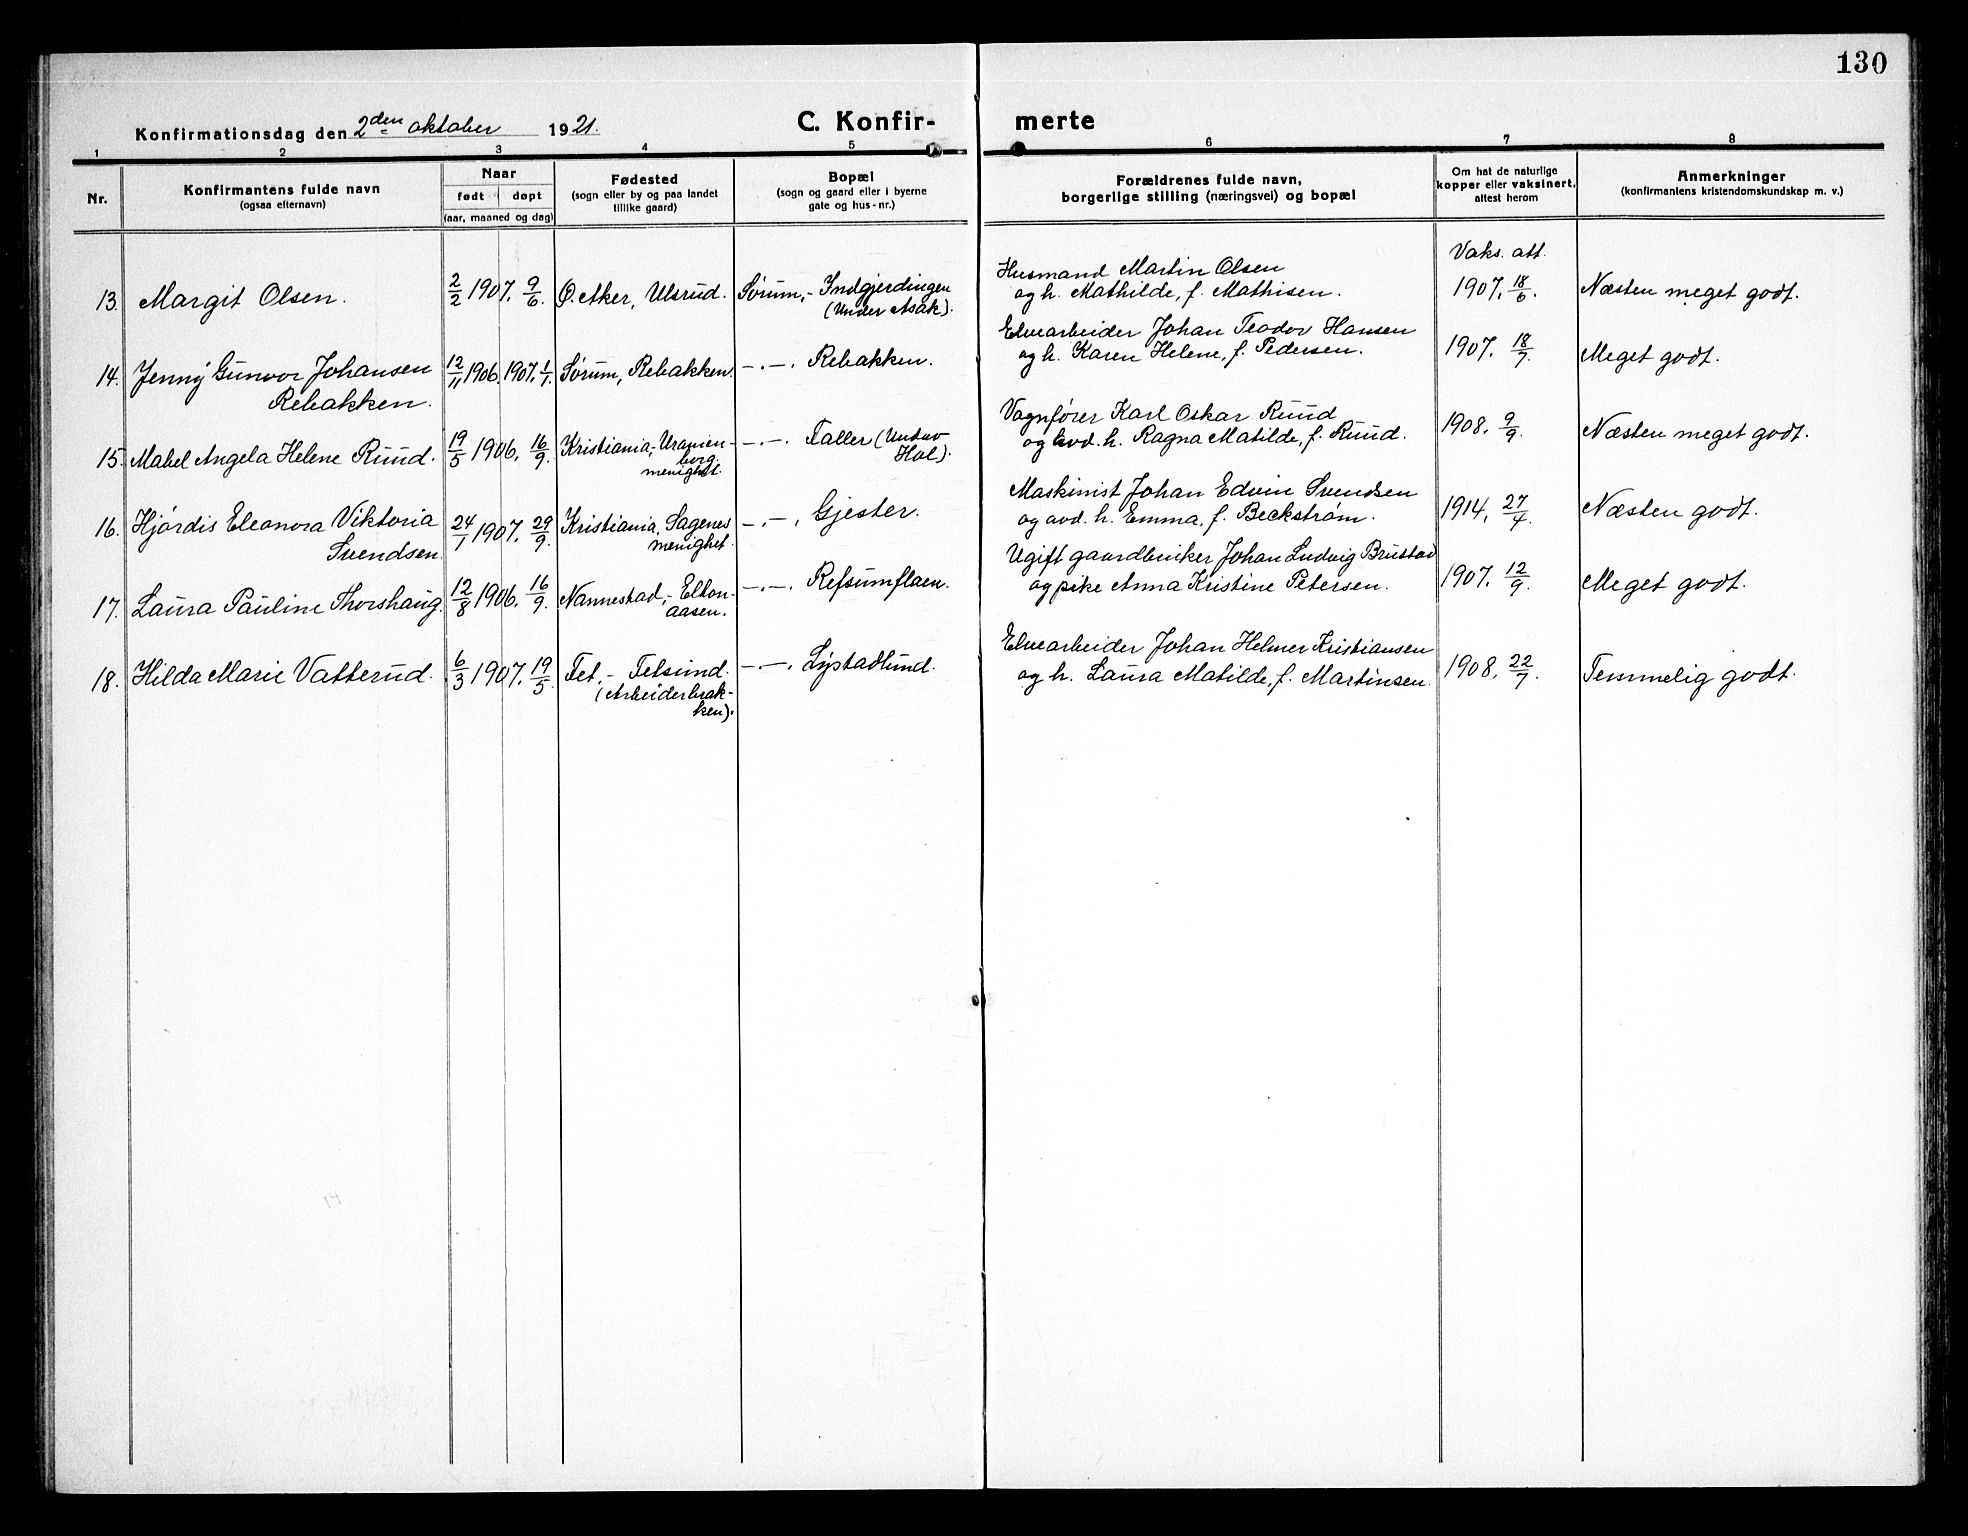 130
Konfirmationsdag den 2den oktober 1921.
C. Konfirmerte
1 2 3 4 5 6 7 8
Nr.
Konfirmantens fulde navn
(ogsaa efternavn)
Naar
født døpt
(aar, maaned og dag)
Fødested
(sogn eller by og paa landet
tillike gaard)
Bopæl
(sogn og gaard eller i byerne
gate og hus-nr.)
Forældrenes fulde navn,
borgerlige stilling (næringsvei) og bopæl
Om hat de naturlige
kopper eller vaksinert,
attest herom
Anmerkninger
(konfirmantens kristendomskundskap m. v.)
13. Margit Olsen. 2/2 1907. 9/6. Ø. Aker, Ulsrud. Sørum,- Indgjerdingen
(under Asak).
Husmand Martin Olsen
og h. Mathilde, f. Mathisen.
Vaks. att.
1907. 18/6. Næsten meget godt.
14. Jenny Gunvor Johansen
Rebakken.
12/11 1906. 1907. 1/1. Sørum, Rebakken. -.-. Rebakken.
Elvearbeider Johan Teodor Hansen
og h. Karen Helene, f. Pedersen.
1907. 18/7. Meget godt.
15. Mabel Angela Helene Ruud. 19/5 1906. 16/9. Kristiania,- Uranien-
borg
menighet.
-.-. Faller (under
Hol).
Vognfører Karl Oskar Ruud
og avd. h. Ragna Matilde, f. Ruud.
1908. 9/9. Næsten meget godt.
16. Hjørdis Eleonora Viktoria
Svendsen.
24/1 1907. 29/9. Kristiania, Sagenes
menighet.
-.-. Gjester.
Maskinist Johan Edvin Svendsen
og avd. h. Emma, f. Beckstrøm.
1914. 27/4. Næsten godt.
17. Laura Pauline Thorshaug. 12/8 1906. 16/9. Nannestad,- Elton-
aasen.
-.-. Refsumflaen.
Ugift gaardbruker Johan Ludvig Brustad
og pike Anna Kristine Petersen.
1907. 12/9. Meget godt.
18. Hilda Marie Vatterud. 6/3 1907. 19/5. Fet,- Fetsund.
(Arbeiderbrak-
ken).
-.-. Lystadlund.
Elvearbeider Johan Helmer Kristiansen
og h. Laura Matilde, f. Martinsen.
1908. 22/7. Temmelig godt.